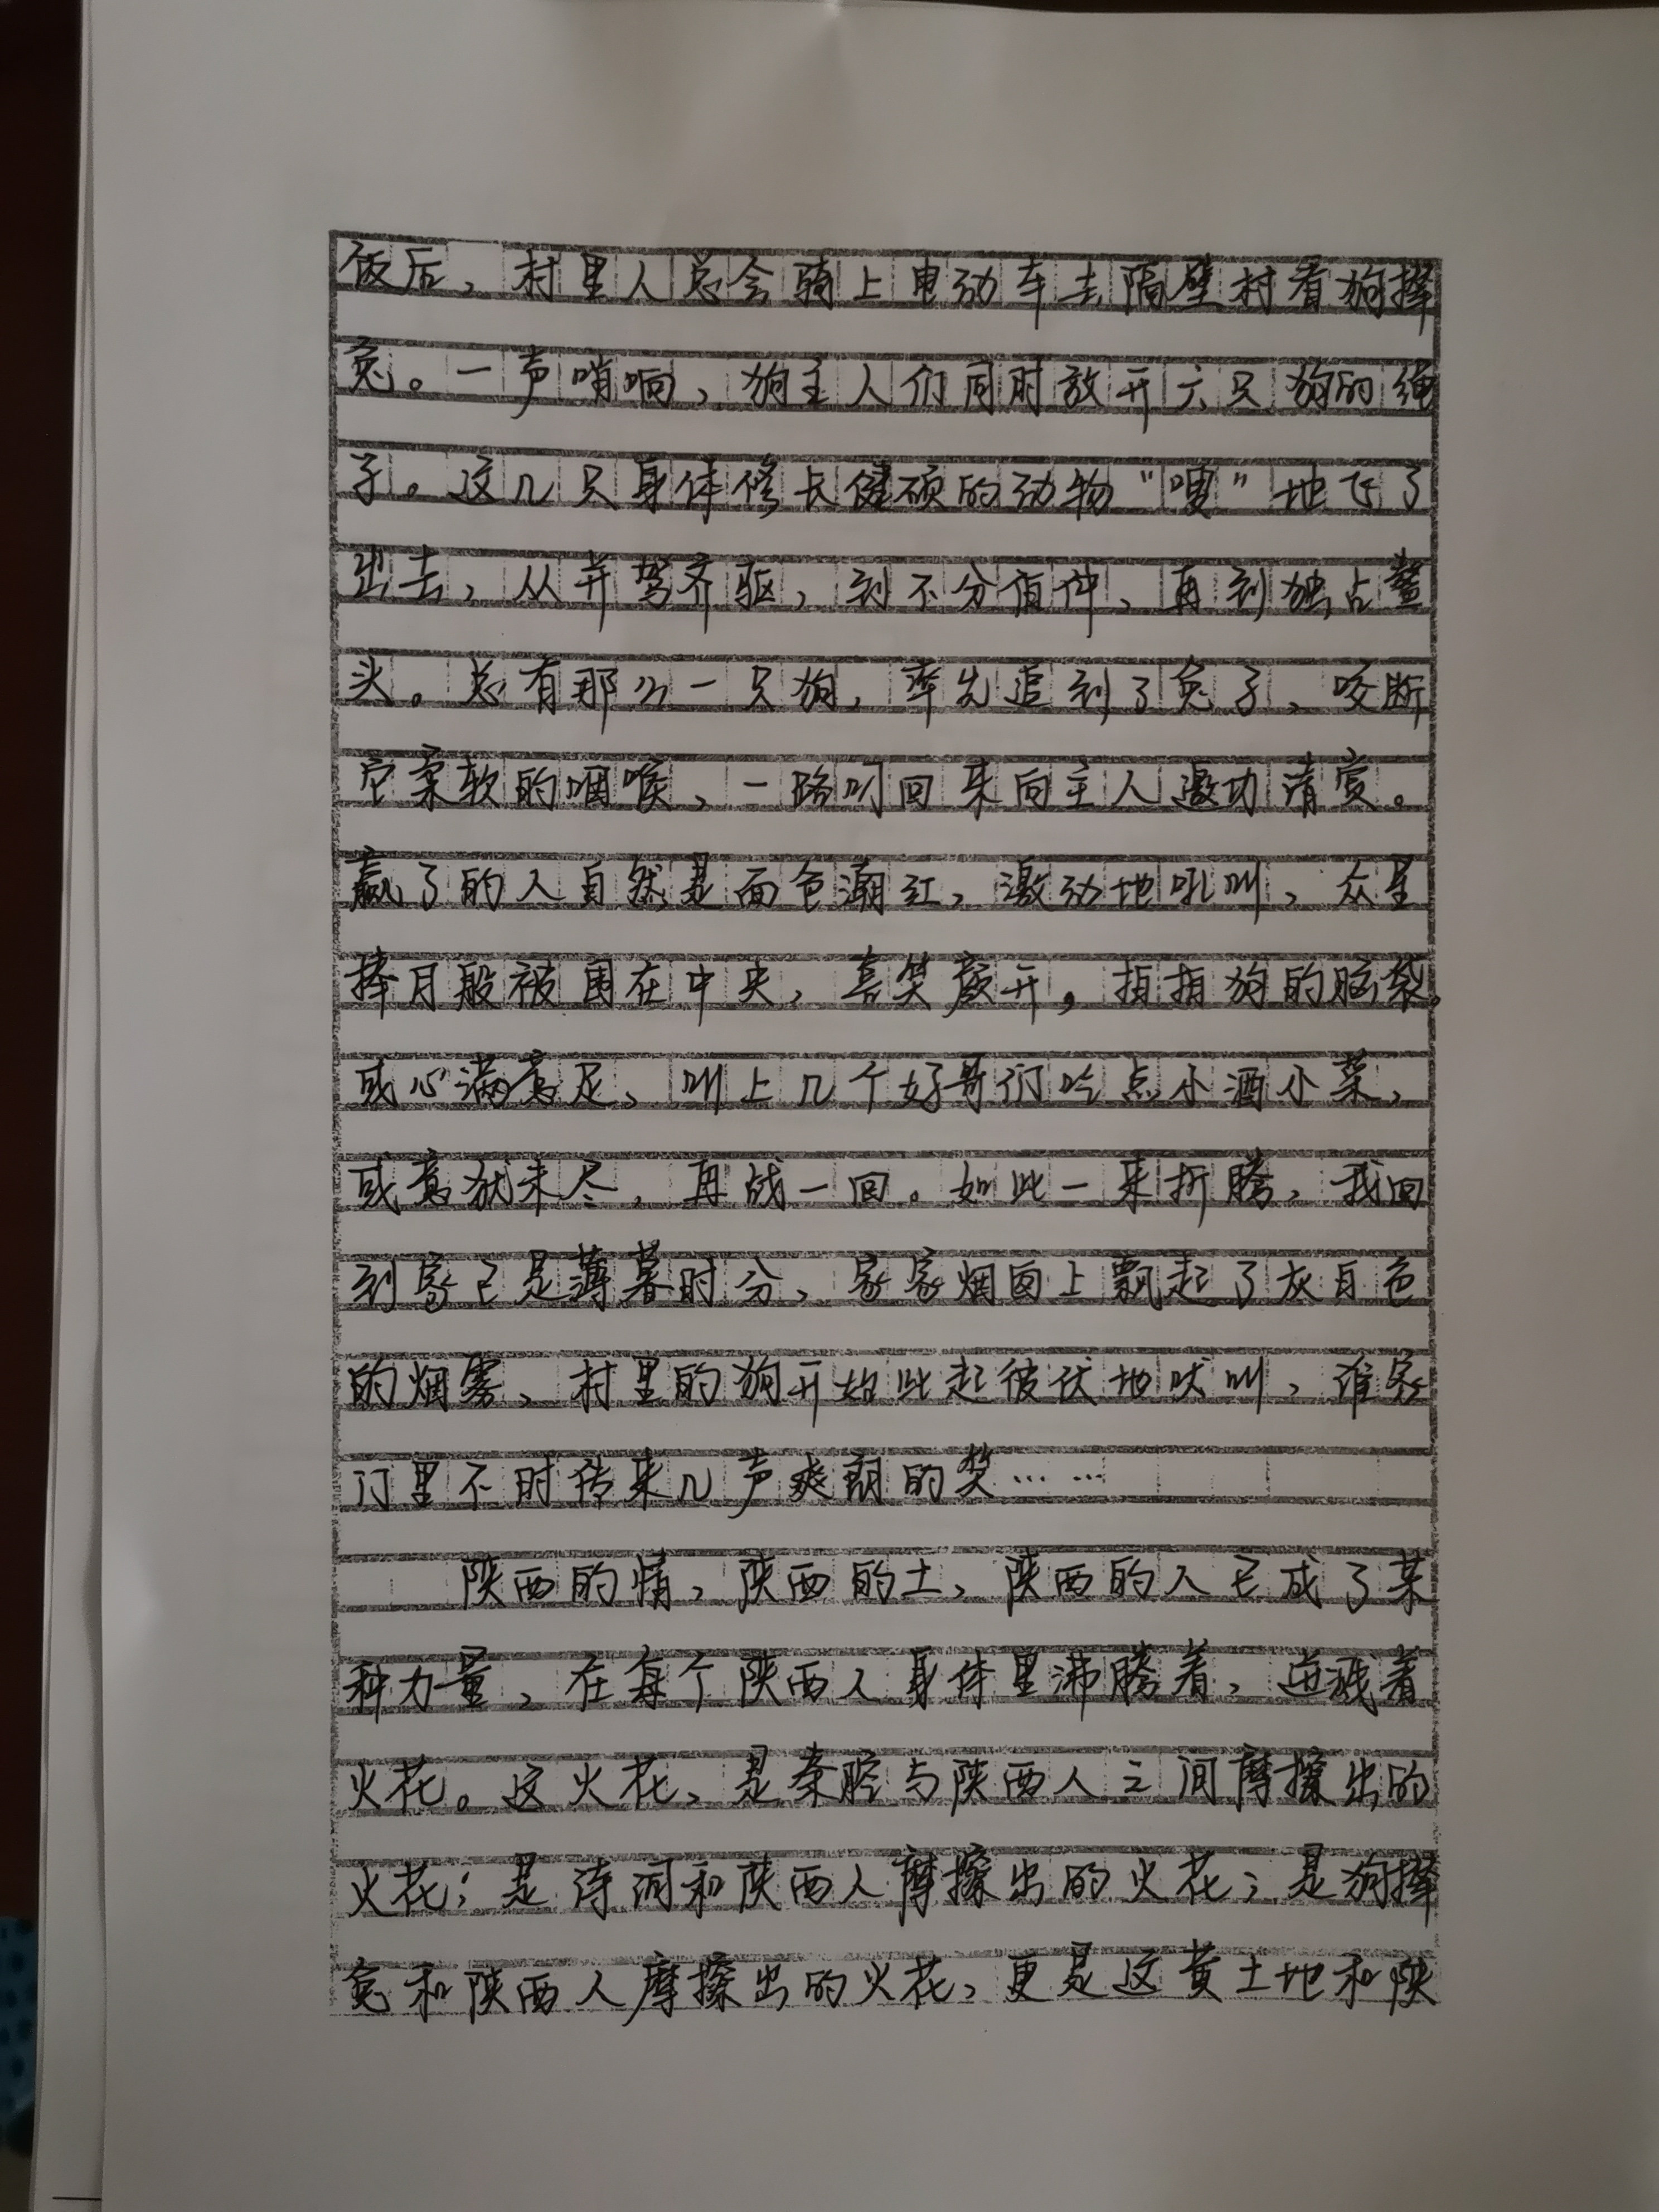 饭后，村里人总会骑上电动车去隔壁村看狗撵
兔。一声哨响，狗主人们同时放开六只狗的绳
子。这几只身体修长健硕的动物“嗖”地飞了
出去，从并驾齐驱，到不分伯仲，再到独占鳌
头。总有那么一只狗，率先追到了兔子，咬断
它柔软的咽喉，一路叼回来向主人邀功请赏。
赢了的人自然是面色潮红，激动地吼叫，众星
捧月般被围在中央，喜笑颜开，拍拍狗的脑袋，
或心满意足，叫上几个好哥们吃点小酒小菜，
或意犹未尽，再战一回。如此一来折腾，我回
到家已是薄暮时分，家家烟囱上飘起了灰白色
的烟雾，村里的狗开始此起彼伏地吠叫，谁家
门里不时传来几声爽朗的笑……
陕西的情，陕西的土，陕西的人已成了某
种力量，在每个陕西人身体里沸腾着，迸溅着
火花。这火花，是秦腔与陕西人之间摩擦出的
火花；是诗词和陕西人摩擦出的火花；是狗撵
兔和陕西人摩擦出的火花，更是这黄土地和陕